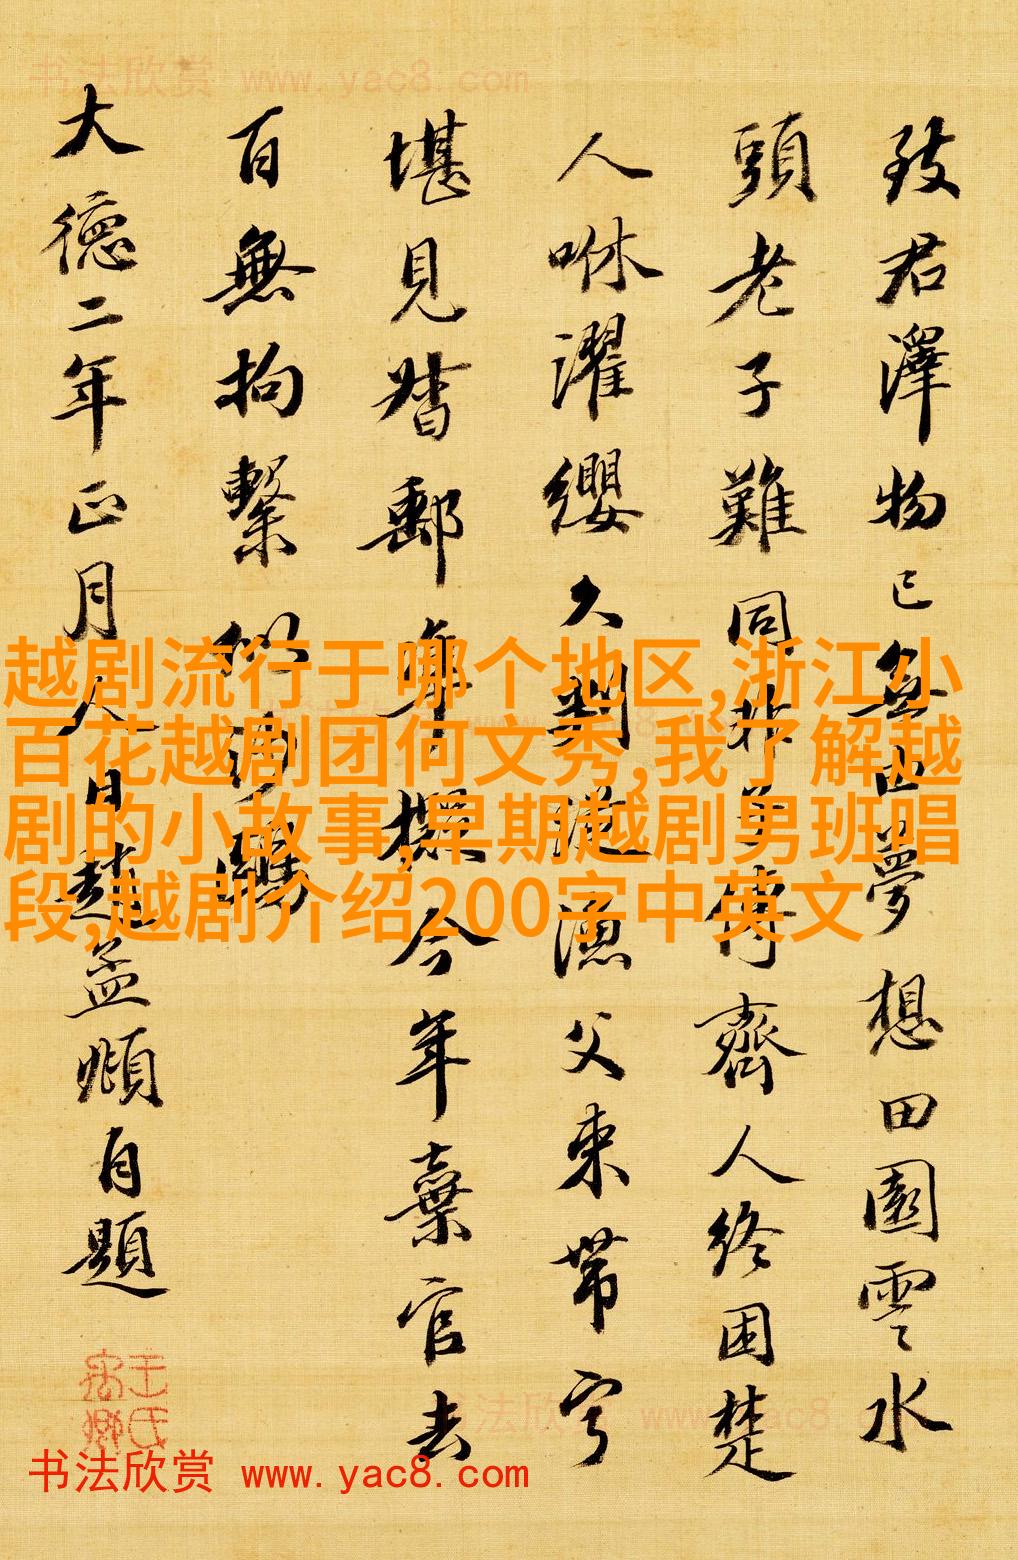 书法欣赏 www.yac8.com
致君澤物已無由夢想田園雲水
頭老子難同非子傳齊人終困楚
人咻濯纓久判從漁父束帶寧
堪見督郵準擬今年棄官去
百無拘繫似沙鷗
大德二年正月人日趙孟頫自題
越剧流行于哪个地区,浙江小
百花越剧团何文秀,我了解越
剧的小故事,早期越剧男班唱
段,越剧介绍200字中英文
书法欣赏 www.yac8.com
书法欣赏 www.yac8.com